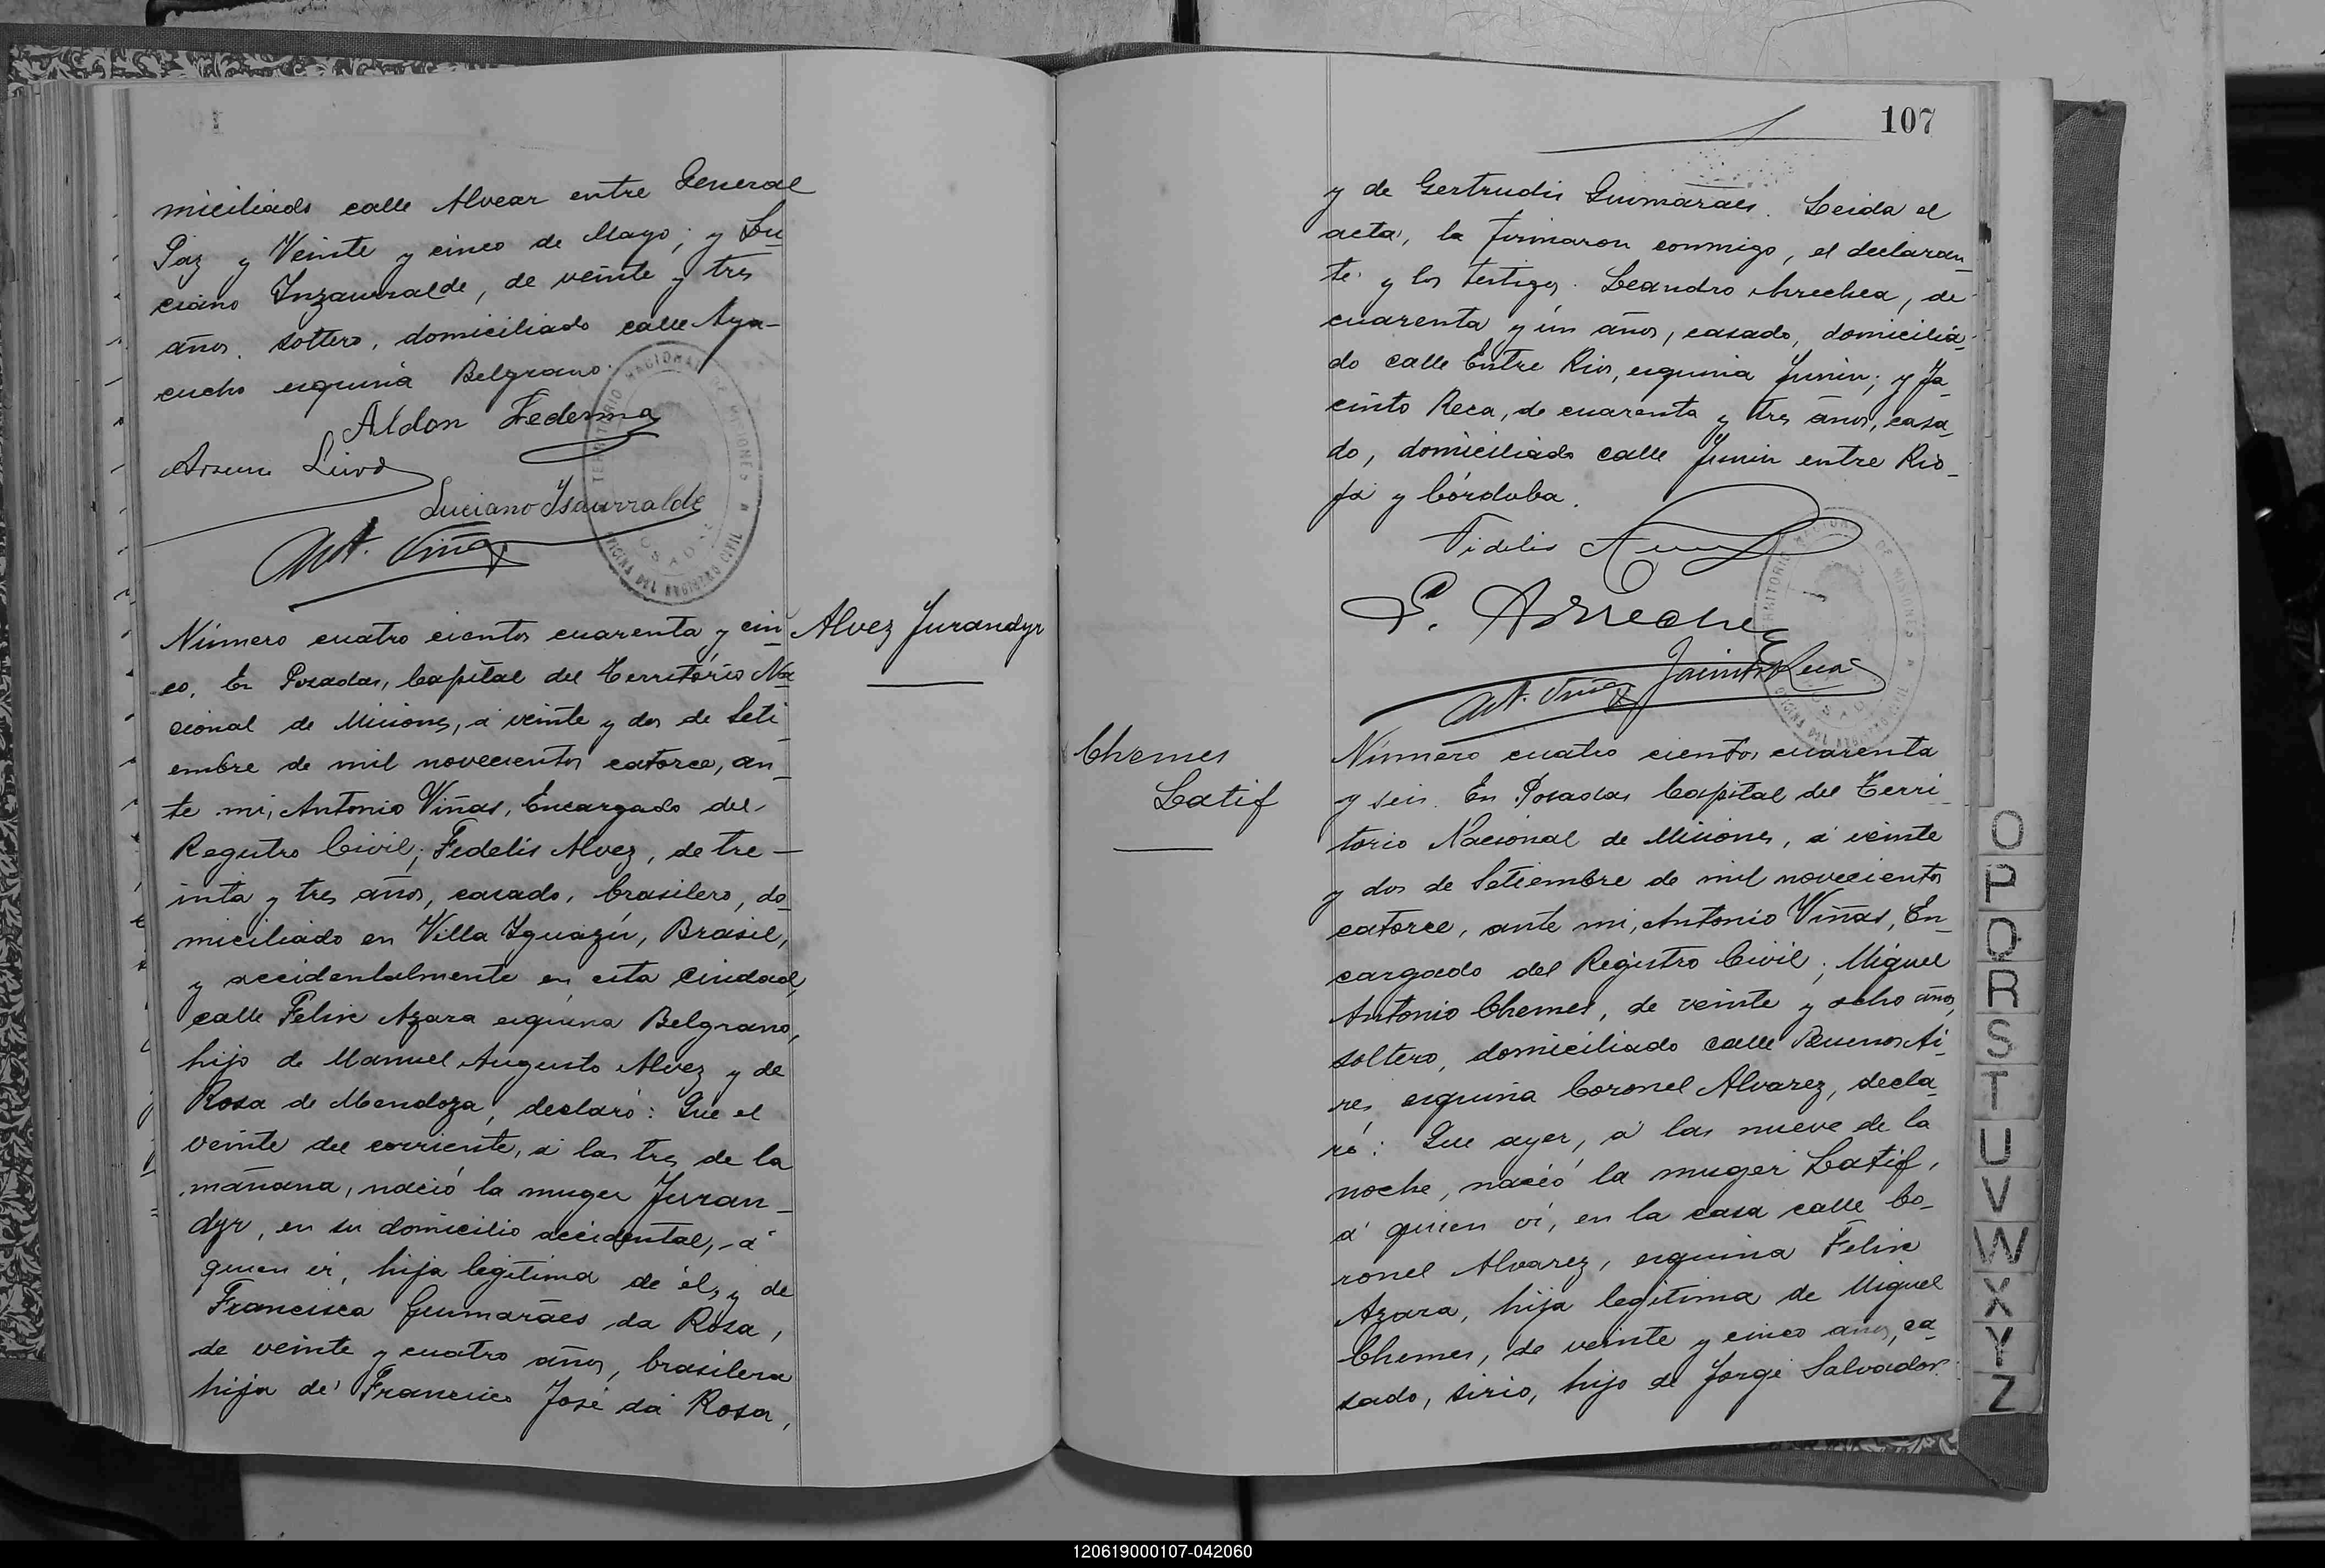 miciliado calle Alvear entre General
Paz y Veinte y cinco de Mayo; y Lu-
ciano Inzaurralde, de veinte y tres
años, soltero, domiciliado calle Aya-
cucho esquina Belgrano.
Aldon Ledesma
Luciano Ysaurralde
Ant. Viñas
TERRITORIO NACIONAL DE MISIONES
OFICINA DEL REGISTRO CIVIL
POSADAS
Número cuatro cientos cuarenta y cin-
co, En Posadas, Capital del Territorio Na-
cional de Misiones, á veinte y dos de Seti-
embre de mil novecientos catorce, an-
te mi, Antonio Viñas, Encargado del
Registro Civil; Fedelis Alvez, de tre-
inta y tres años, casado, brasilero, do-
miciliado en Villa Yguazú, Brasil,
y accidentalmente en esta Ciudad,
calle Felix Azara esquina Belgrano,
hijo de Manuel Augusto Alvez y de
Rosa de Mendoza, declaró: Que el
veinte del corriente, á las tres de la
mañana, nació la muger Juran-
dyr, en su domicilio accidental, á
quien ví, hija legítima de él, y de
Francisca Guimarães da Rosa,
de veinte y cuatro años, brasilera
hija de Francisco José da Rosa,
Alvez Jurandyr
107
y de Gertrudis Guimaraes. Leida el
acta, la firmaron conmigo, el declaran-
te y los testigos Leandro Arrechea, de
cuarenta y un años, casado, domicilia-
do calle Entre Rios, esquina Junin; y Ja-
cinto Reca, de cuarenta y tres años, casa-
do, domiciliado calle Junin entre Rio-
ja y Córdoba.
Fidelis
L. Arrechea
Jacinto Reca
Ant. Viñas
TERRITORIO NACIONAL DE MISIONES
OFICINA DEL REGISTRO CIVIL
POSADAS
Chemes
Latif
Número cuatro cientos cuarenta
y seis. En Posadas Capital del Terri-
torio Nacional de Misiones, á veinte
y dos de Setiembre de mil novecientos
catorce, ante mi, Antonio Viñas, En-
cargado del Registro Civil; Miguel
Antonio Chemes, de veinte y ocho años,
soltero, domiciliado calle Buenos Ai-
res esquina Coronel Alvarez, decla-
ró: Que ayer, á las nueve de la
noche, nació la muger Latif,
á quien ví, en la casa calle Co-
ronel Alvarez, esquina Felix
Azara, hija legítima de Miguel
Chemes, de veinte y cinco años, ca-
sado, sirio, hijo de Jorge Salvador
O
P
Q
R
S
T
U
V
W
X
Y
Z
120619000107-042060